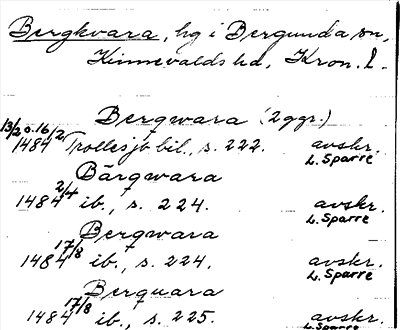 Bergkvara, hg i Bergunda sn,
Kinnevalds hd, Kron. l.
Bergwara (2 ggr.)
13/2 o. 16/2
1484 Trolles jb bil., s. 222. avskr.
L. Sparre
Bärgwara
1484 2/4 ib., s. 224. avskr.
L. Sparre
Bergwara
1484 17/8 ib., s. 224. avskr.
L. Sparre
Berquara
1484 17/8 ib., s. 225. avskr.
L. Sparre